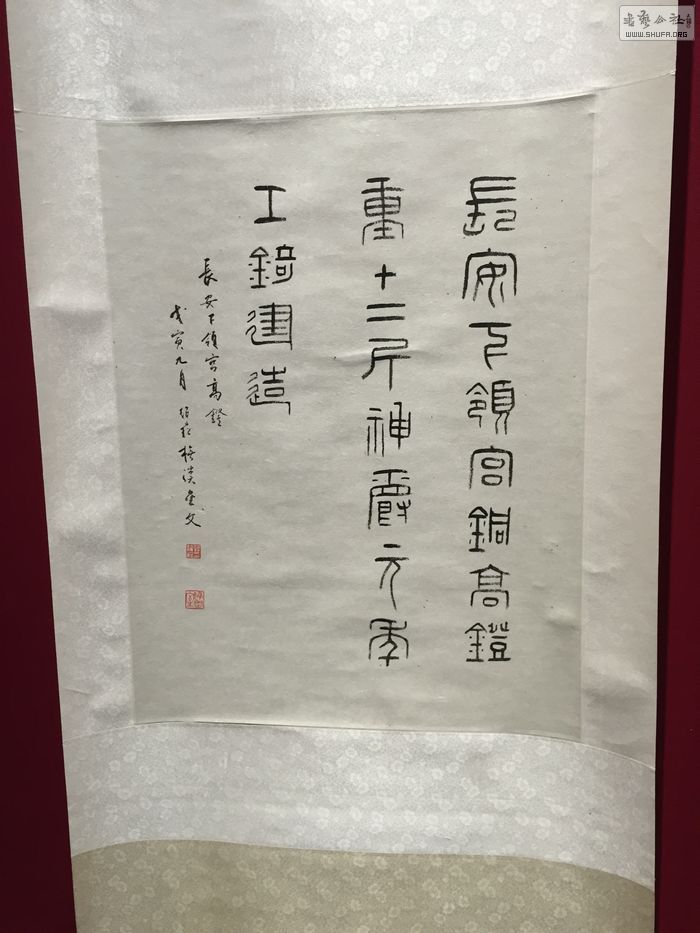 長安下領宮銅高鐙
重十二斤神爵元年
工錡建造
長安下領宮高鐙
戊寅九月 臨漢金文
書藝公社
WWW.SHUFA.ORG